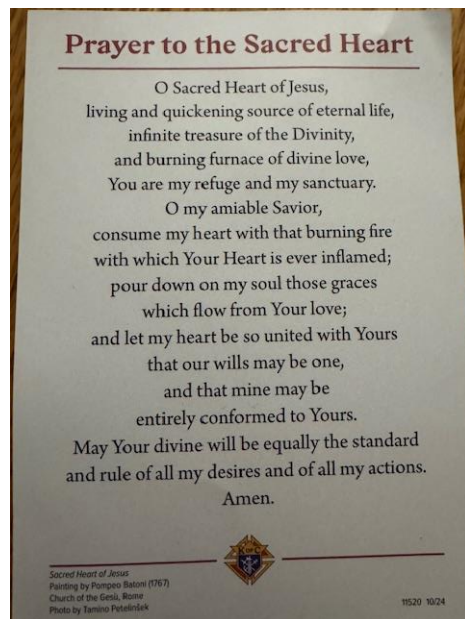 Prayer to the Sacred Heart
O Sacred Heart of Jesus,
living and quickening source of eternal life,
infinite treasure of the Divinity,
and burning furnace of divine love,
You are my refuge and my sanctuary.
O my amiable Savior,
consume my heart with that burning fire
with which Your Heart is ever inflamed;
pour down on my soul those graces
which flow from Your love;
and let my heart be so united with Yours
that our wills may be one,
and that mine may be
entirely conformed to Yours.
May Your divine will be equally the standard
and rule of all my desires and of all my actions.
Amen.
K OF C
Sacred Heart of Jesus
Painting by Pompeo Batoni (1767)
Church of the Gesù, Rome
Photo by Tamino Petelinšek
11520 10/24